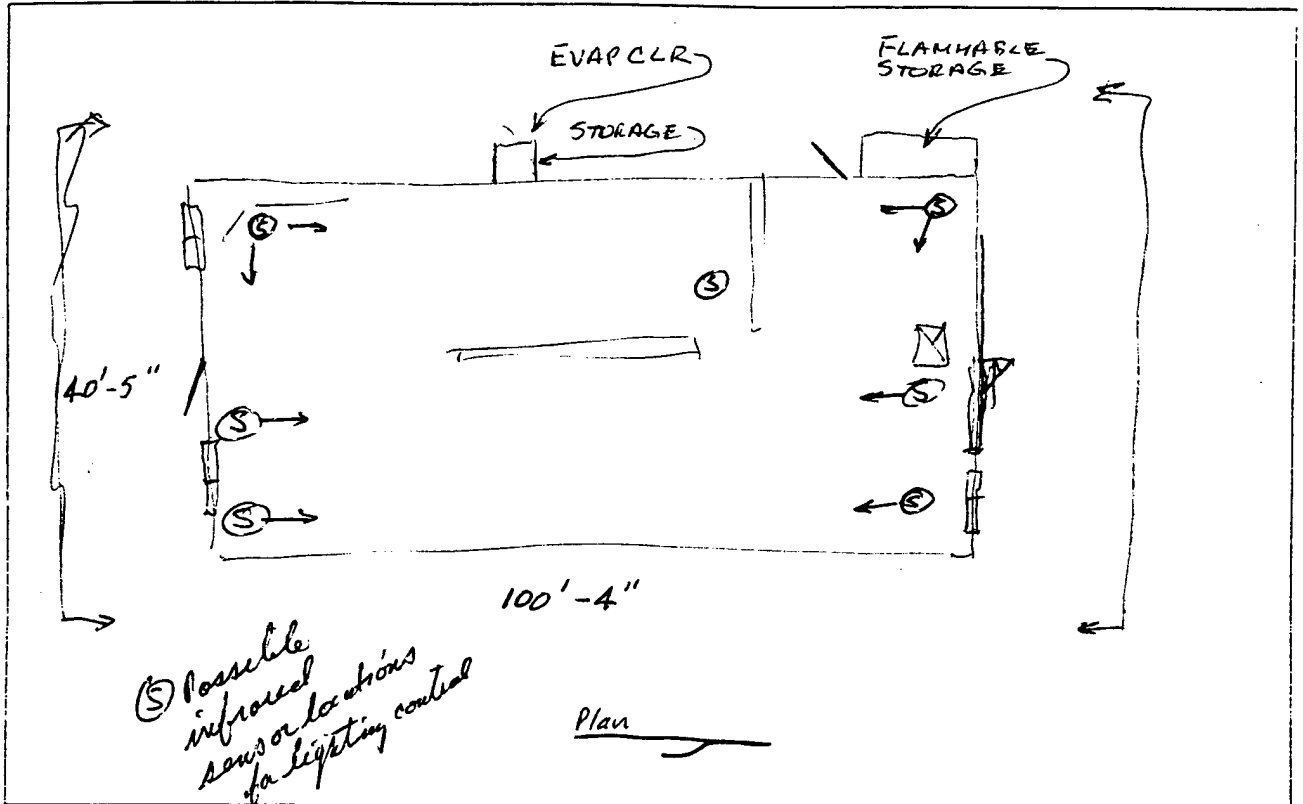 EVAP CLR
FLAMMABLE
STORAGE
STORAGE
S
S
S
40'-5"
S
S
S
S
100'-4"
S Possible
infrared
sensor locations
for lighting control
Plan